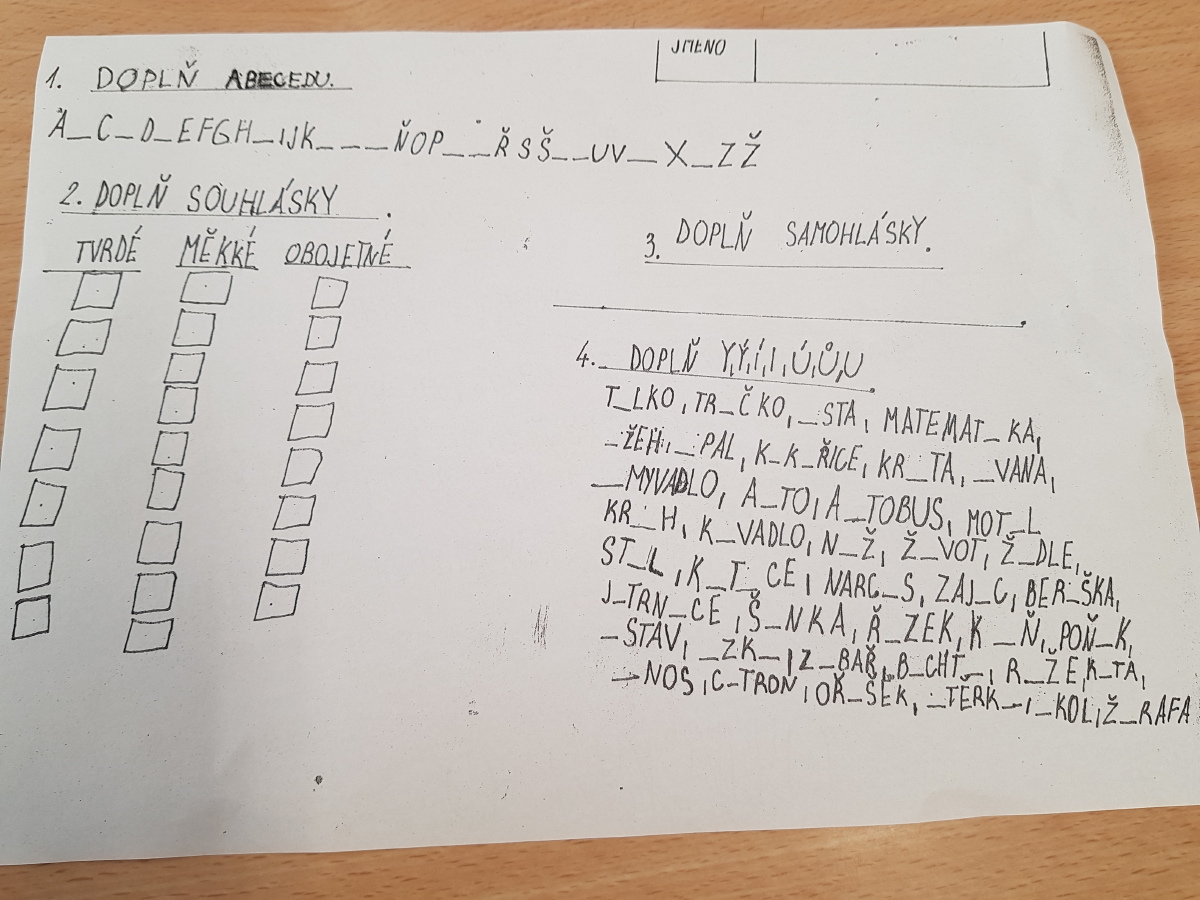 JMENO
1. DOPLŇ ABECEDU.
A_C_D_EFGH_IJK___ŇOP__ŘSŠ__UV_X_ZŽ
2. DOPLŇ SOUHLÁSKY.
TVRDÉ MĚKKÉ OBOJETNÉ
3. DOPLŇ SAMOHLÁSKY.
4. DOPLŇ Y,Ý,Í,I,Ú,Ů,U
T_LKO, TR_ČKO, _STA, MATEMAT_KA,
_ŽEH, _PAL, K_K_ŘICE, KR_TA, _VANA,
_MYVADLO, A_TO, A_TOBUS, MOT_L
KR_H, K_VADLO, N_Ž, Ž_VOT, Ž_DLE,
ST_L, K_T_CE, NARC_S, ZAJ_C, BER_ŠKA,
J_TRN_CE, Š_NKA, Ř_ZEK, K_Ň, POŇ_K,
_STAV, _ZK_, Z_BAŘ, B_CHT_, R_ŽE, K_TA,
_NOS, C_TRON, OŘ_ŠEK, _TĚRK_, _KOL, Ž_RAFA